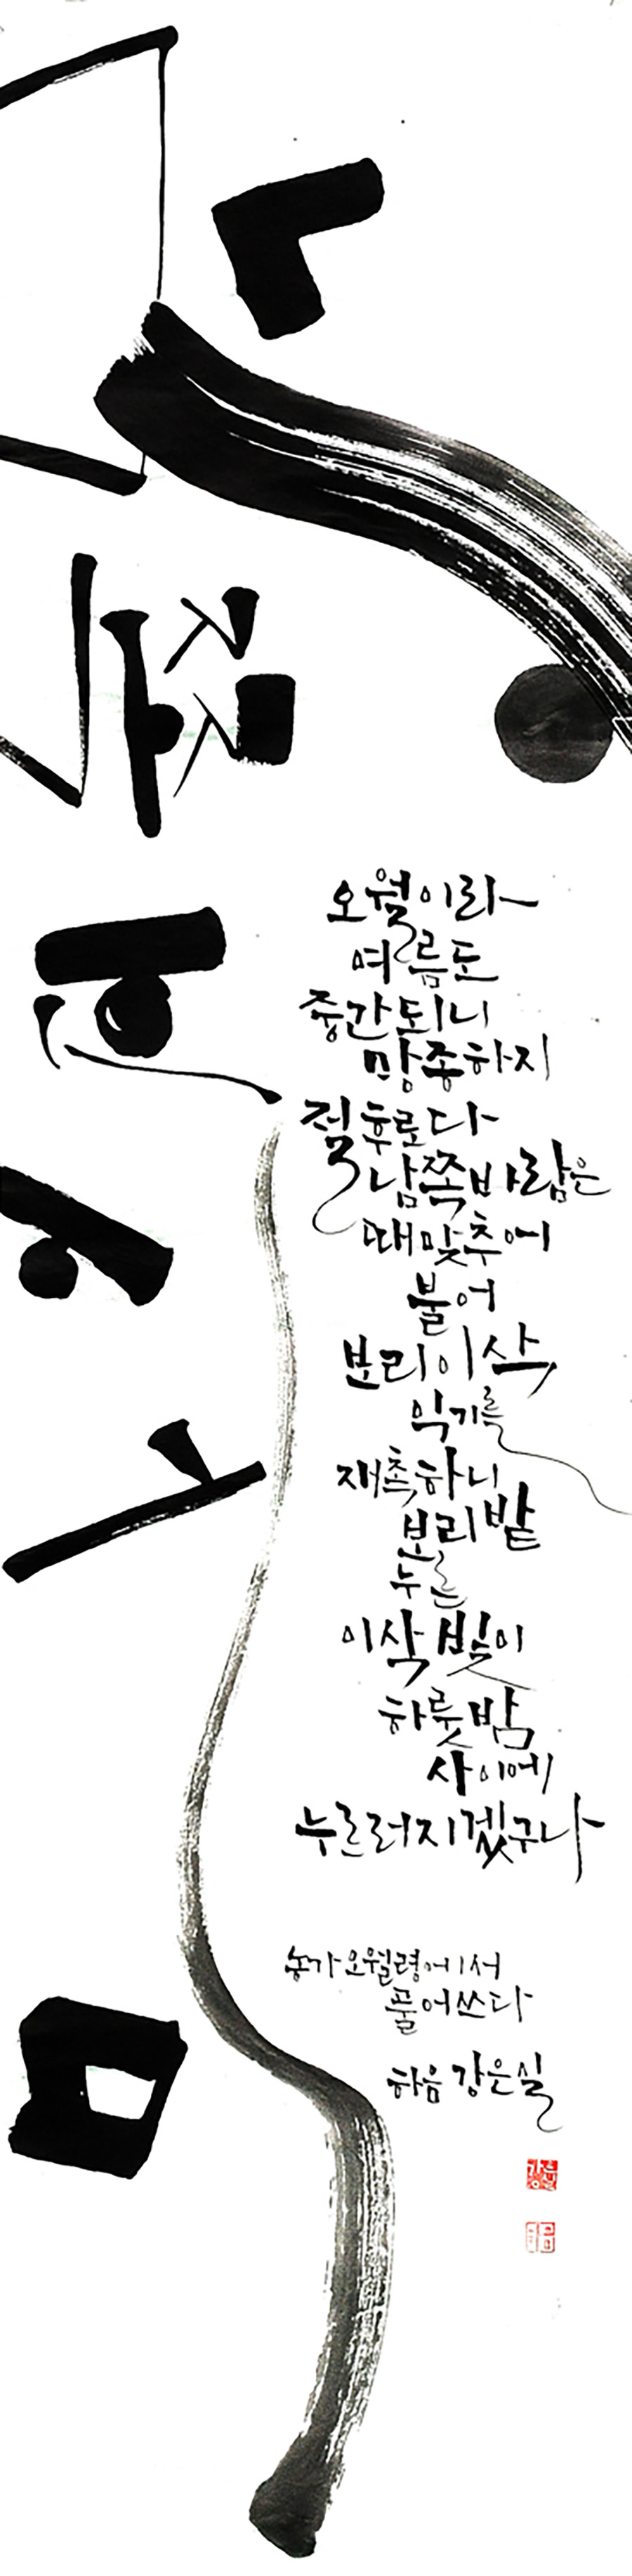 오월이라
여름도
중간되니
망종하지
절후로다
남쪽바람은
때맞추어
불어
보리이삭
익기를
재촉하니
보리밭
누른
이삭빛이
하룻밤
사이에
누르러지겠구나
농가오월령에서
풀어쓰다
하음 강은실